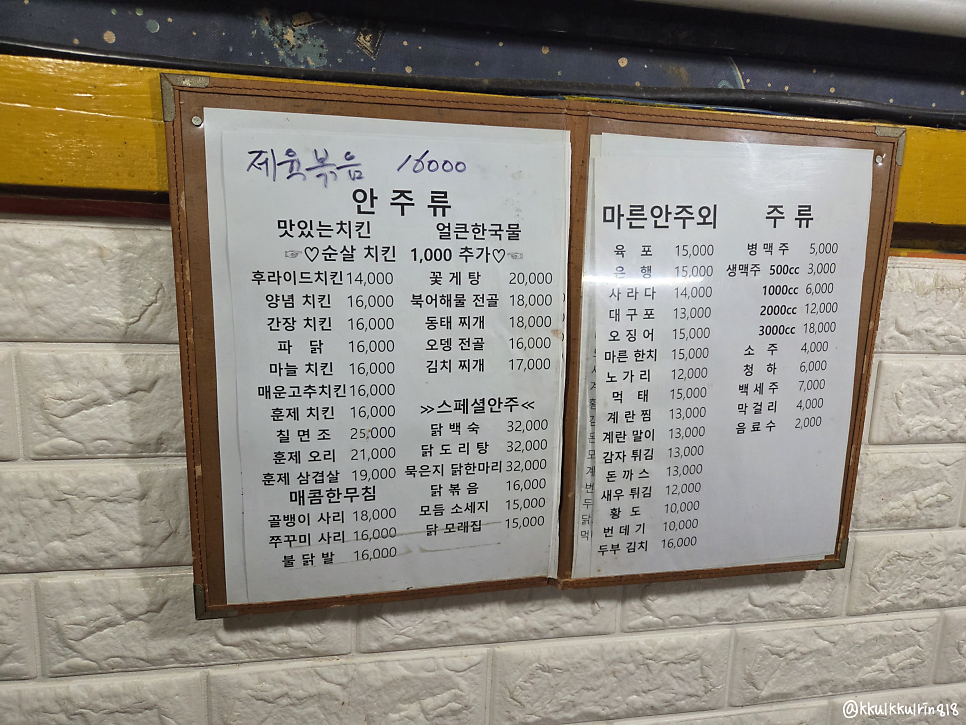 제육볶음 16000
안 주 류
맛있는치킨
☞♡순살 치킨 1,000 추가♡☜
후라이드치킨 14,000
양념 치킨 16,000
간장 치킨 16,000
파 닭 16,000
마늘 치킨 16,000
매운고추치킨 16,000
훈제 치킨 16,000
칠 면 조 25,000
훈제 오리 21,000
훈제 삼겹살 19,000
매콤한무침
골뱅이 사리 18,000
쭈꾸미 사리 16,000
불 닭 발 16,000
얼큰한국물
꽃 게 탕 20,000
북어해물 전골 18,000
동태 찌개 18,000
오뎅 전골 16,000
김치 찌개 17,000
≫스페셜안주≪
닭 백 숙 32,000
닭 도 리 탕 32,000
묵은지 닭한마리 32,000
닭 볶 음 16,000
모듬 소세지 15,000
닭 모래집 15,000
마른안주외
육 포 15,000
은 행 15,000
사 라 다 14,000
대 구 포 13,000
오 징 어 15,000
마른 한치 15,000
노 가 리 12,000
먹 태 15,000
계 란 찜 13,000
계란 말이 13,000
감자 튀김 13,000
돈 까 스 13,000
새우 튀김 12,000
황 도 10,000
번 데 기 10,000
두부 김치 16,000
주 류
병 맥 주 5,000
생맥주 500cc 3,000
1000cc 6,000
2000cc 12,000
3000cc 18,000
소 주 4,000
청 하 6,000
백 세 주 7,000
막 걸 리 4,000
음 료 수 2,000
@kkulkkulring818